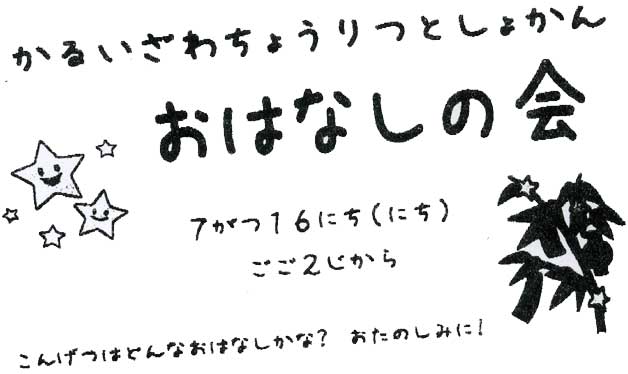 かるいざわちょうりつとしょかん
おはなしの会
7がつ16にち(にち)
ごご2じから
こんげつはどんなおはなしかな? おたのしみに!